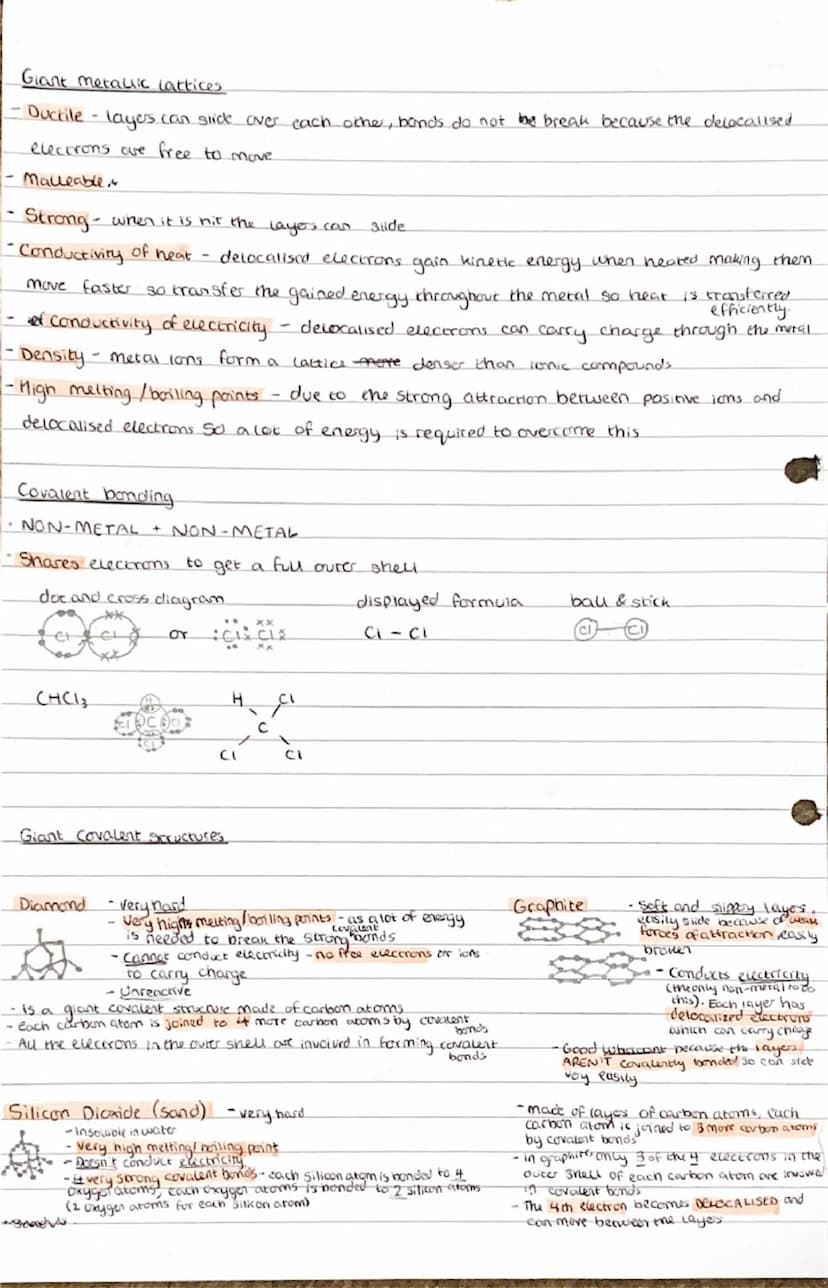 Giant metallic lattices
- Ductile - layers can slide over each other, bonds do not break because the delocalised
electrons are free to move
- Malleable
- Strong - when it is hit the layers can slide
- Conductivity of heat - delocalised electrons gain kinetic energy when heated making them
move faster so transfer the gained energy throughout the metal so heat is transferred
efficiently.
- Conductivity of electricity - delocalised electrons can carry charge through the metal
- Density - metal ions form a lattice more denser than ionic compounds
- High melting/boiling points - due to the strong attraction between positive ions and
delocalised electrons so a lot of energy is required to overcome this
Covalent bonding
· NON-METAL + NON-METAL
· Shares electrons to get a full outer shell
dot and cross diagram displayed formula ball & stick
Cl Cl or Cl Cl Cl - Cl Cl Cl
CHCl3 H Cl
H C Cl Cl Cl C
Cl Cl
Giant Covalent structures
Diamond - very hard
- very high melting/boiling points - as a lot of energy
is needed to break the strong covalent bonds
- Cannot conduct electricity - no free electrons or ions
to carry charge
- Unreactive
- is a giant covalent structure made of carbon atoms
- each carbon atom is joined to 4 more carbon atoms by covalent
bonds
- All the electrons in the outer shell are involved in forming covalent
bonds
Graphite - Soft and slippy layers,
easily slide because of weak
forces of attraction, easily
broken
- Conducts electricity
(the only non-metal to do
this). Each layer has
delocalized electrons
which can carry charge
- Good because the layers
AREN'T covalently bonded so can slide
very easily
- made of layers of carbon atoms, each
carbon atom is joined to 3 more carbon atoms
by covalent bonds
- in graphite only 3 of the 4 electrons in the
outer shell of each carbon atom are involved
in covalent bonds
- The 4th electron becomes DELOCALISED and
can move between the layers
Silicon Dioxide (sand) - very hard
- Insoluble in water
- very high melting/boiling point
- Doesn't conduct electricity
- 4 very strong covalent bonds - each silicon atom is bonded to 4
oxygen atoms, each oxygen atoms is bonded to 2 silicon atoms
(2 oxygen atoms for each silicon atom)